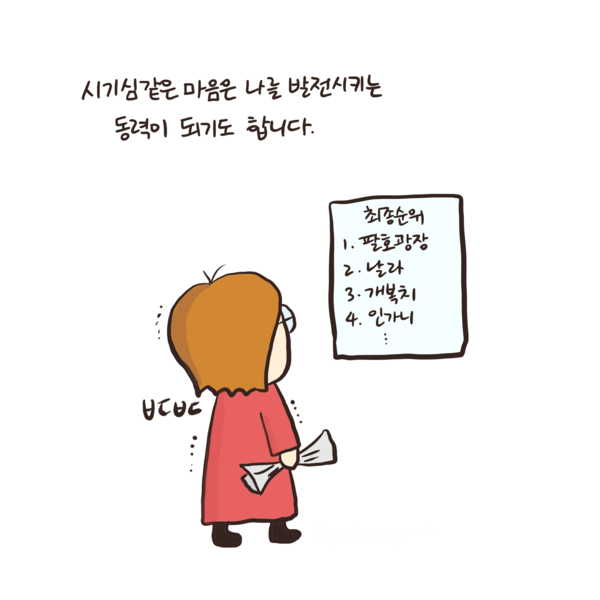 시기심같은 마음은 나를 발전시키는
동력이 되기도 합니다.
최종순위
1. 팔호광장
2. 날라
3. 개복치
4. 인가니
⋮
ㅂㄷㅂㄷ